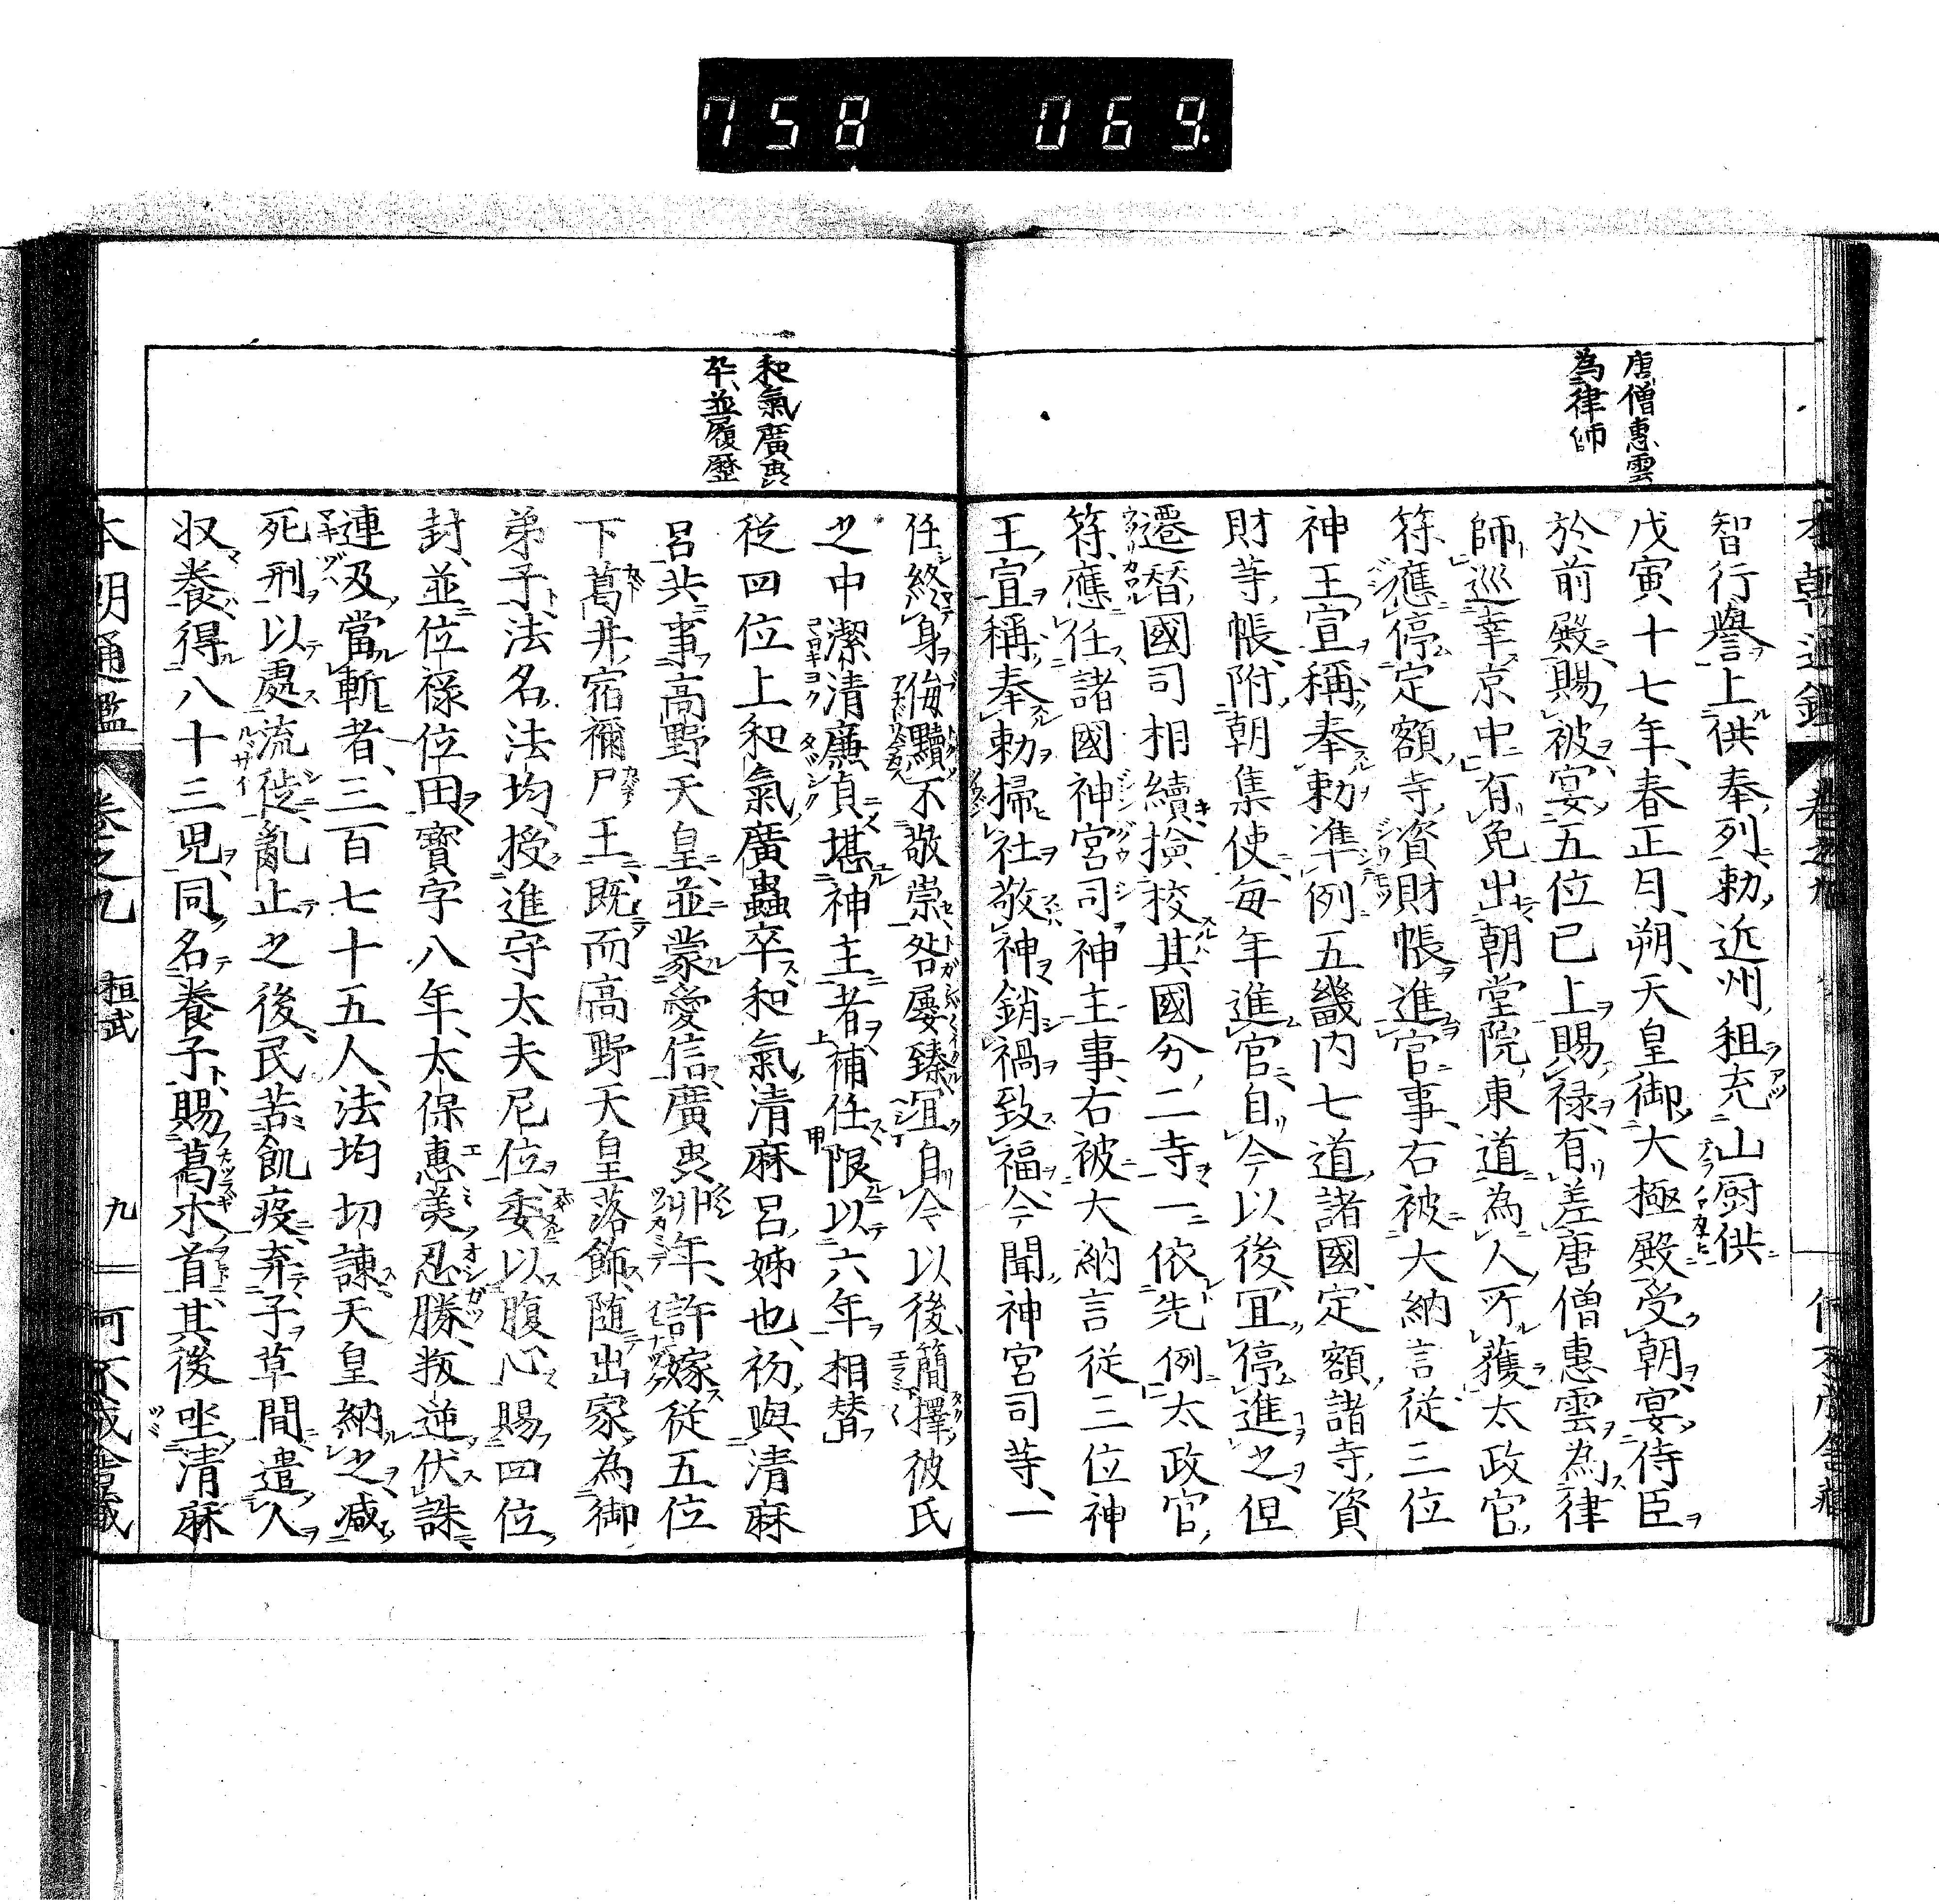 758 069
唐僧惠雲
為律師
智行譽上供奉列勅近州租充山厨供
戊寅十七年春正月朔天皇御大極殿受朝宴侍臣
於前殿賜被宴五位已上賜禄有差唐僧惠雲為律
師巡幸京中有免出朝堂院東道為人所獲太政官
符應停定額寺資財帳進官事右被大納言從三位
神王宣稱奉勅準例五畿内七道諸國定額諸寺資
財等帳附朝集使毎年進官自今以後冝停進之但
遷替國司相續撿校其國分二寺一依先例太政官
符應任諸國神宮司神主事右被大納言從三位神
王宣稱奉勅掃社敬神銷禍致福今聞神宮司等一
和氣廣虫
卒並履歷
任終身侮黷不敬崇咎屢臻冝自今以後簡擇彼氏
之中潔清廉貞堪神主者補任限以六年相替
從四位上和氣廣蟲卒和氣清麻呂姊也初與清麻
呂共事高野天皇並蒙愛信廣虫丱年許嫁從五位
下葛井宿禰戸王既而高野天皇落飾随出家為御
弟子法名法均授進守太夫尼位委以腹心賜四位
封並位禄位田寳字八年太保惠美忍勝叛逆伏誅
連及當斬者三百七十五人法均切諫天皇納之减
死刑以處流徙亂止之後民苦飢疫弃子草間遣人
収養得八十三児同名養子賜葛木首其後坐清麻
本朝通鑑 卷之九 桓武 九